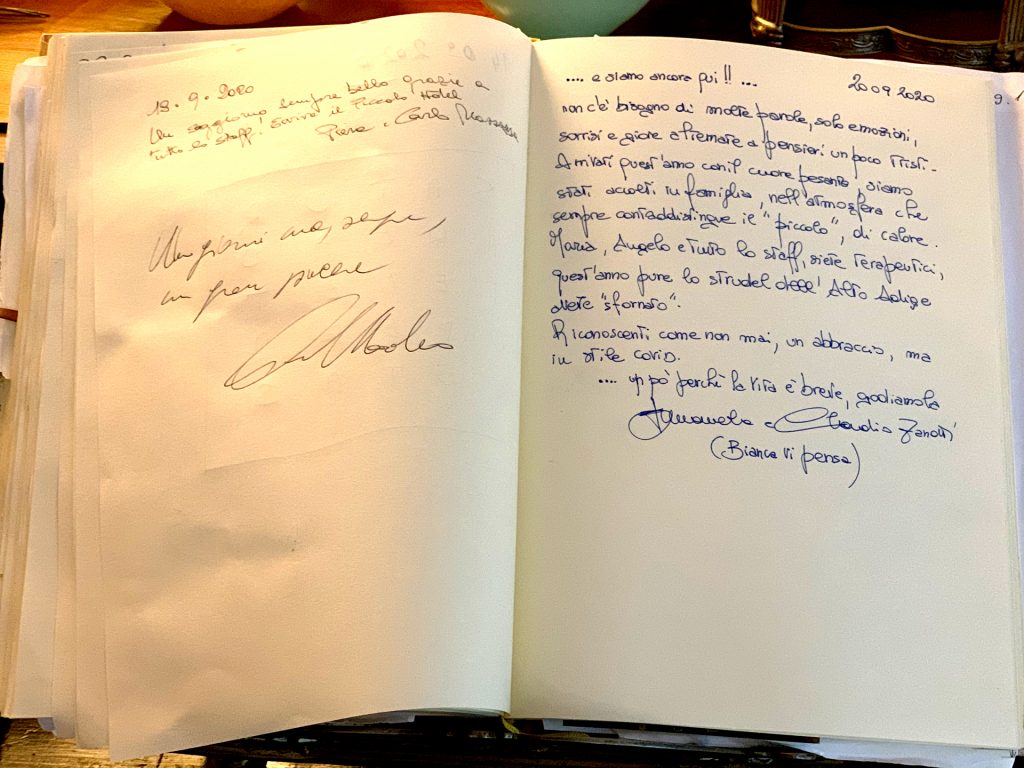 13.9.2020
Un soggiorno sempre bello grazie a
tutto lo staff! Evviva il Piccolo Hotel
Piera e Carlo
un gran piacere
.... e siamo ancora qui !! ...
20 09 2020
non c'è bisogno di molte parole, solo emozioni,
sorrisi e gioie a fremare a pensieri un poco tristi.
Arrivati quest'anno con il cuore pesante, siamo
stati accolti in famiglia, nell'atmosfera che
sempre contraddistingue il "piccolo", di calore.
Maria, Angelo e tutto lo staff, siete terapeutici,
quest'anno pure lo strudel dell' Alto Adige
avete "sfornato".
Riconoscenti come non mai, un abbraccio, ma
in stile covid.
.... un pò perchè la vita è breve, godiamola
Emanuela e Claudio Zanotti
(Bianca vi pensa)
9.